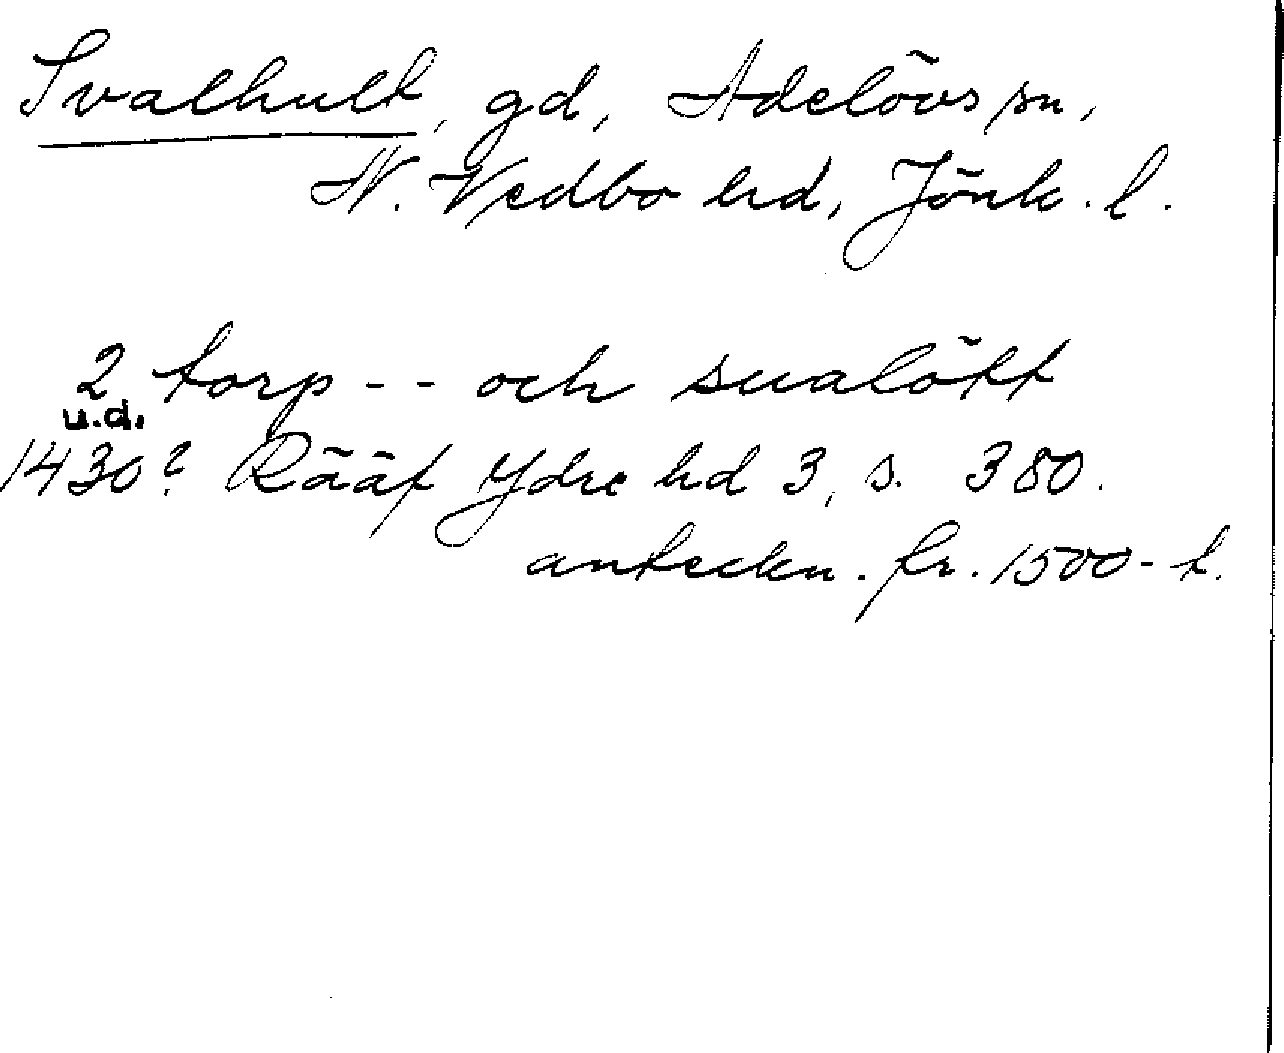 Svalhult, gd, Adelövs sn,
N. Vedbo hd, Jönk. l.
2 torp -- och sualött
u.d.
1430? Rääf Ydre hd 3, s. 380.
anteckn. fr. 1500-t.